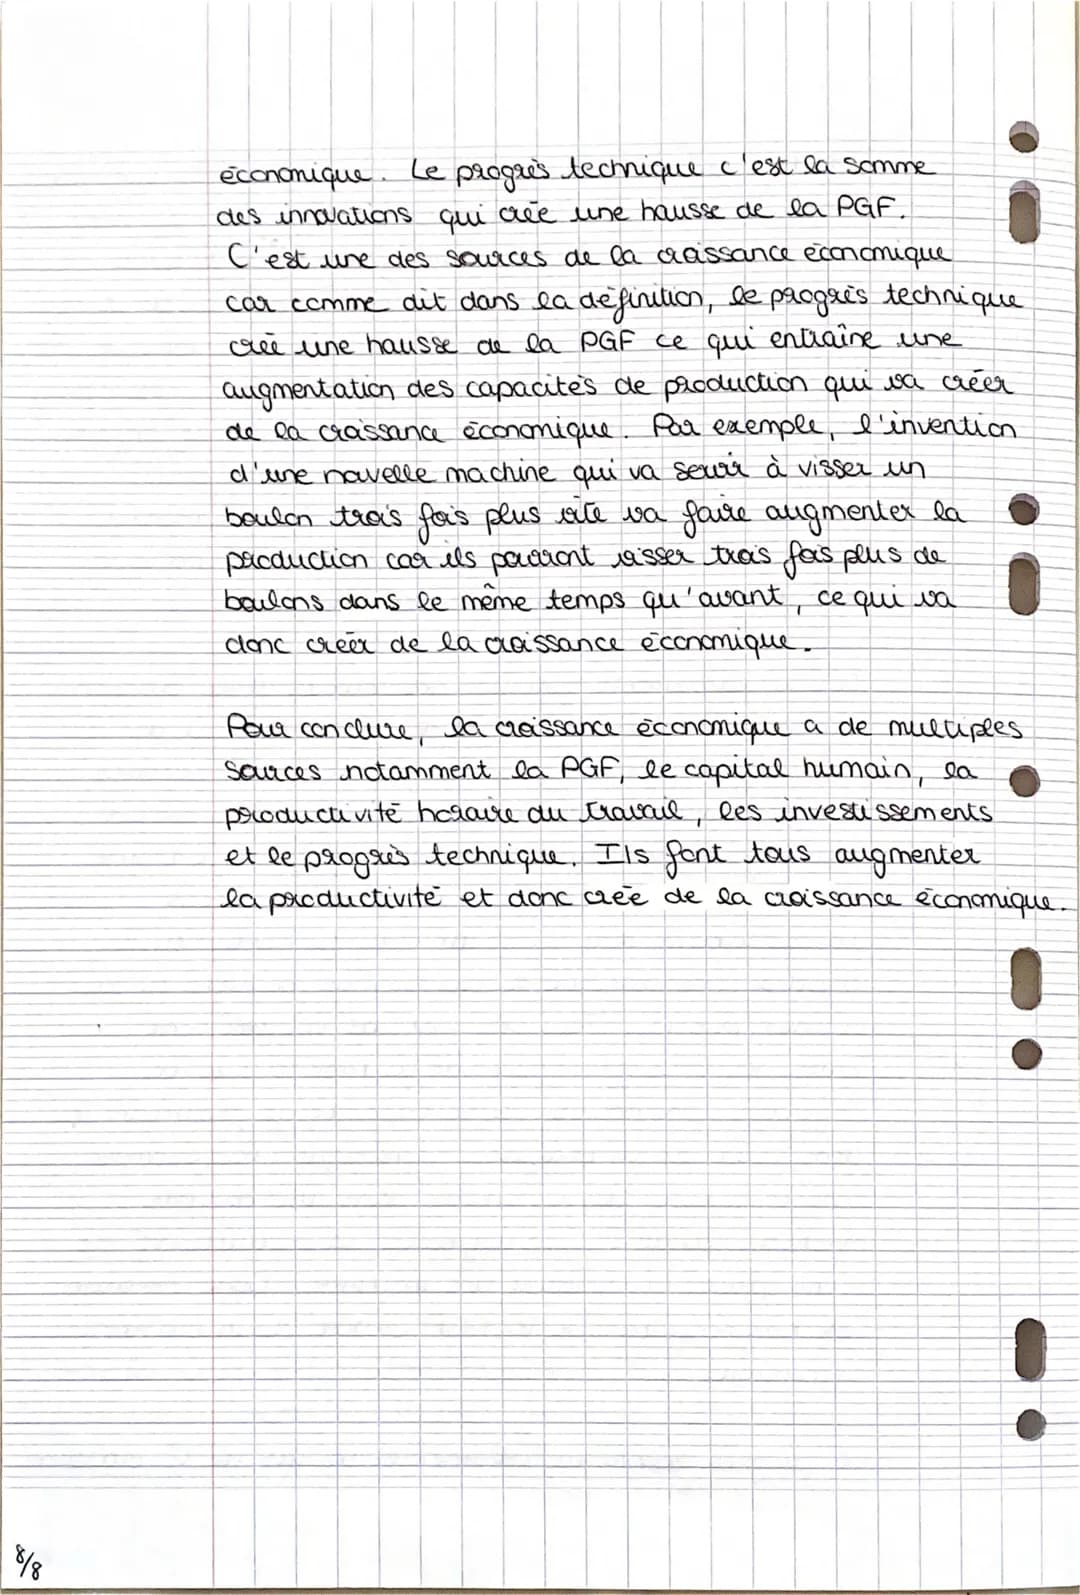 économique. Le progrès technique c'est la somme
des innovations qui crée une hausse de la PGF.
C'est une des sources de la croissance économique
car comme dit dans la définition, le progrès technique
créé une hausse de la PGF ce qui entraîne une
augmentation des capacités de production qui va créer
de la croissance économique. Par exemple, l'invention
d'une nouvelle machine qui va servir à visser un
boulon trois fois plus vite va faire augmenter la
production car ils pourront visser trois fois plus de
boulons dans le même temps qu'avant, ce qui va
donc créer de la croissance économique.
Pour conclure, la croissance économique a de multiples
sources notamment la PGF, le capital humain, la
productivité horaire du travail, les investissements
et le progrès technique. Ils font tous augmenter
la productivité et donc crée de la croissance économique.
8/8